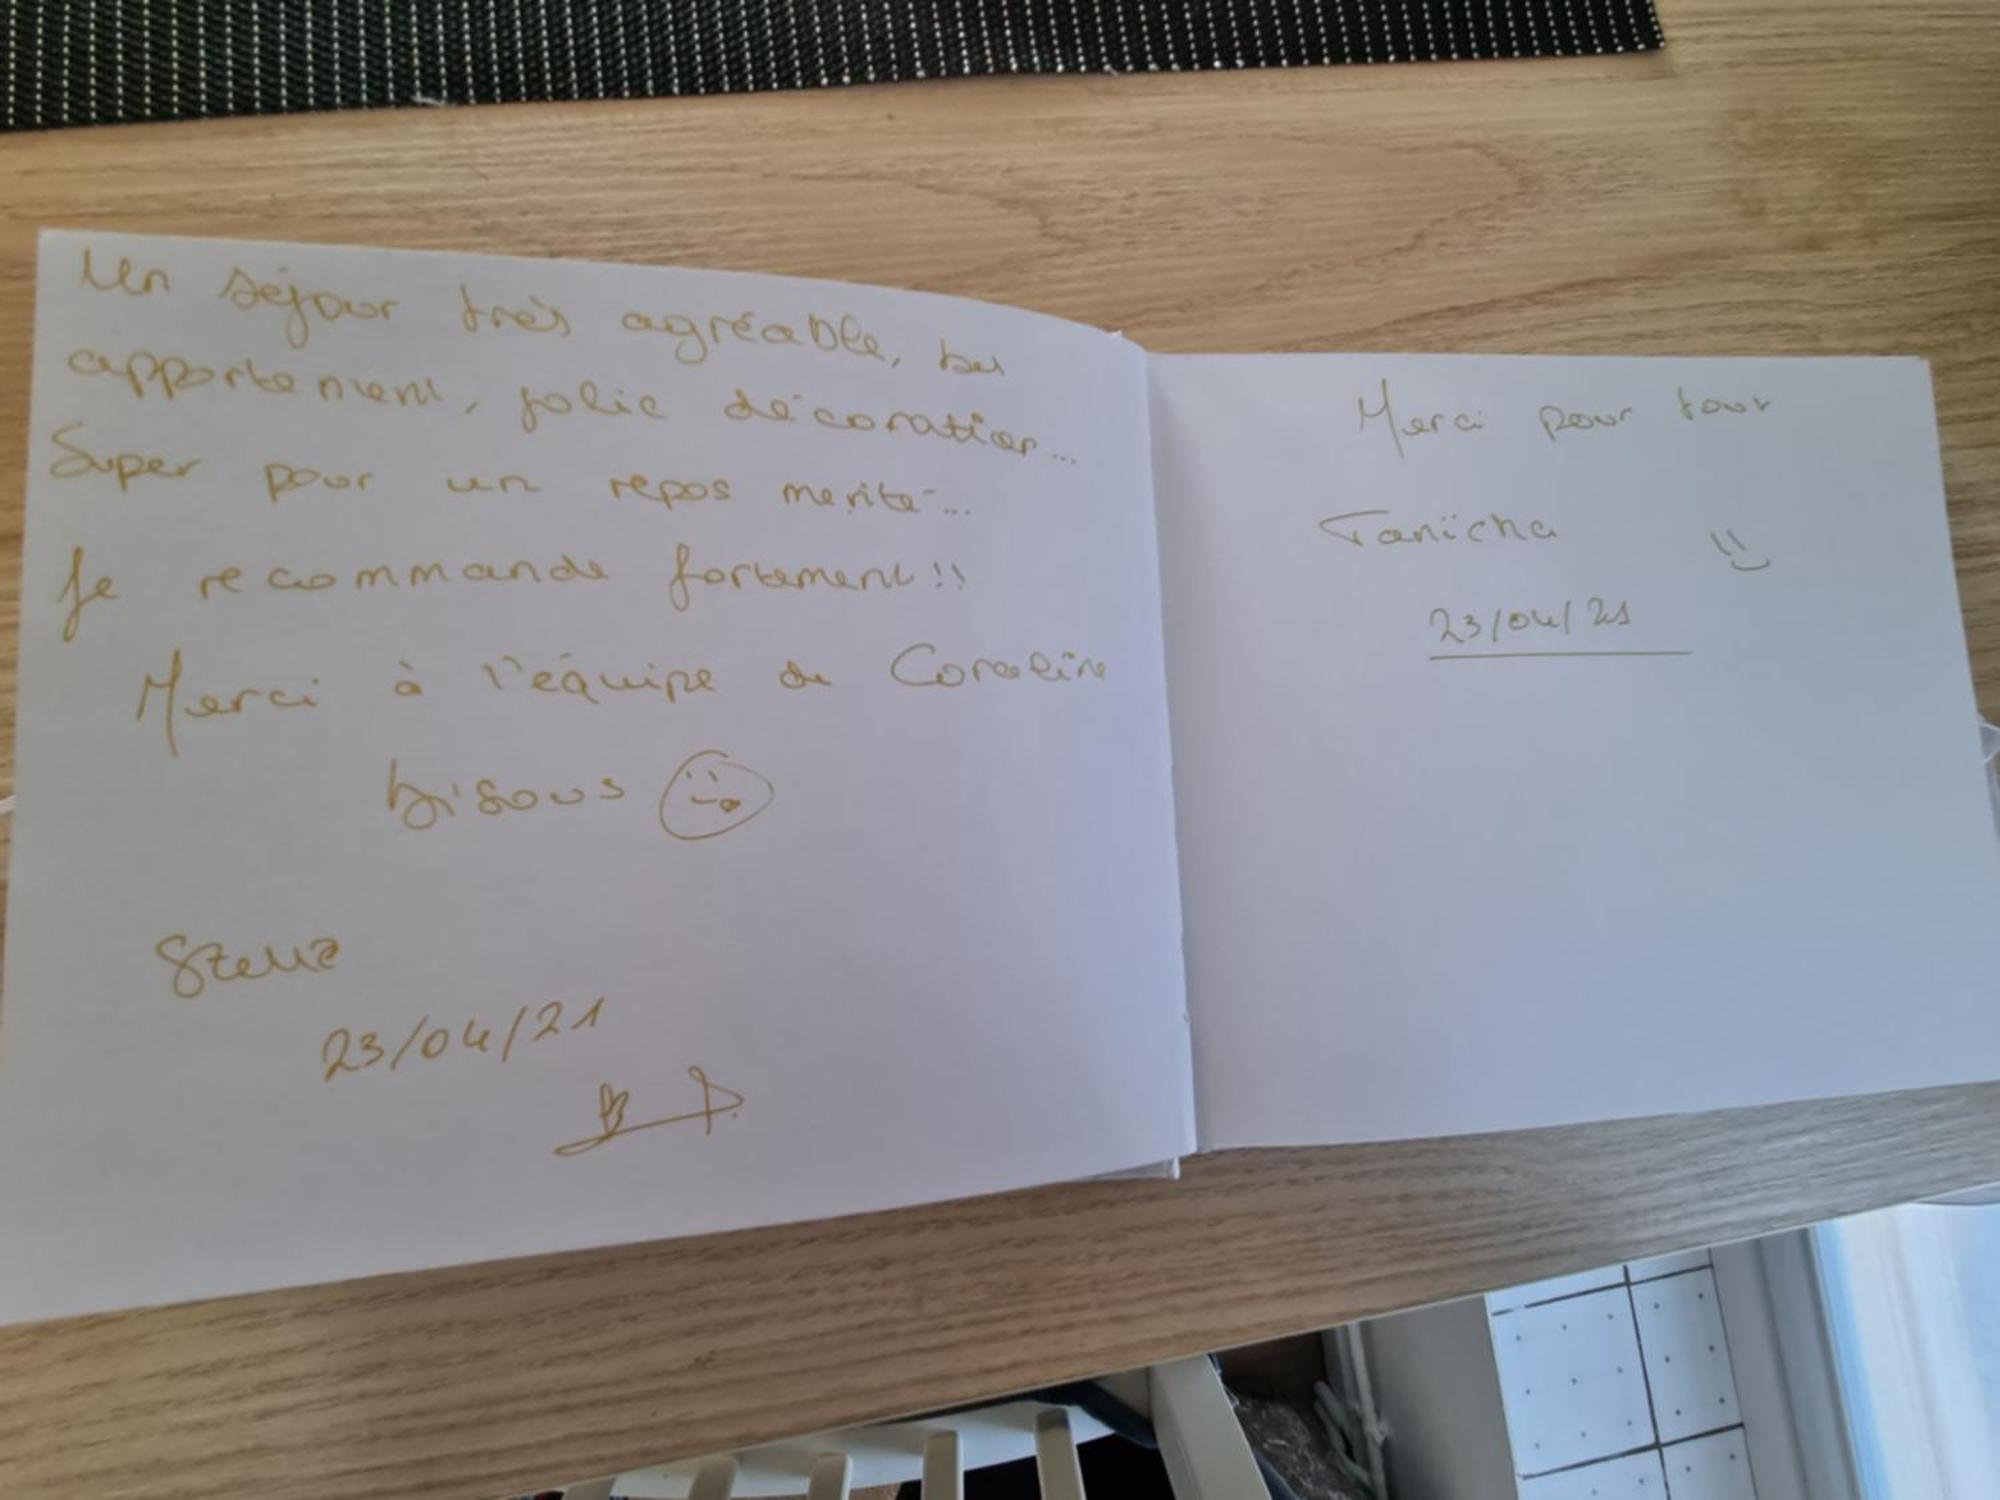 Un séjour très agréable, bel
appartement, jolie décoration...
Super pour un repos merité...
Je recommande fortement!!
Merci à l'équipe de Coraline
bisous
Stella
23/04/21
Merci pour tout
Tanïcha
23/04/21